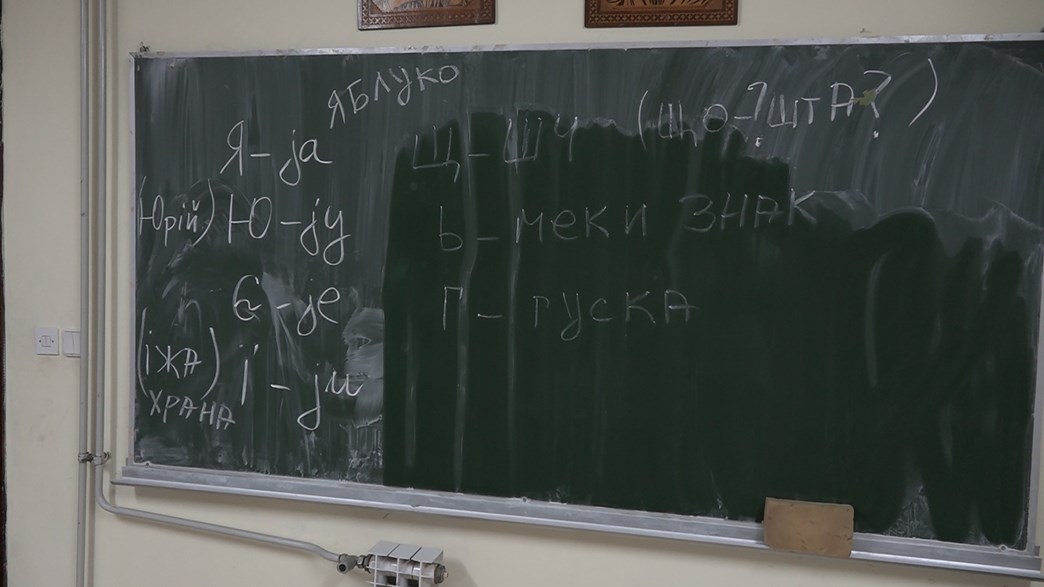 ЯБЛУКО
Я - ја
(Юрій) Ю - ју
Є - је
(їжА ХРАНА) Ї - ји
Щ - ШЧ (ЩО-? ШТА?)
Ь - МЕКИ ЗНАК
Г - ГУСКА